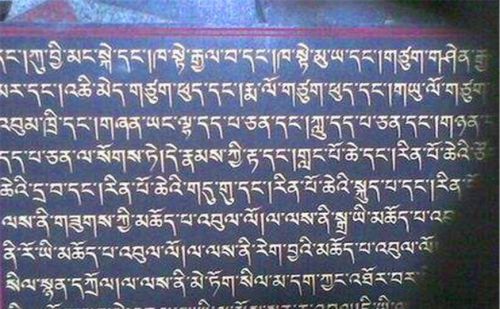 དང་།ཀུ་བྱི་མང་སྐེ་དང་།ཁ་སྟེ་རྒྱལ་བ་དང་།ཁ་སྟེ་མུ་ཡ་དང་།གཙུག་གཤེན་རྒྱ
མར་དང་།འཆི་མེད་གཙུག་ཕུད་དང་།རྨ་ལོ་གཙུག་ཕུད་དང་།གཡུ་ལོ་གཙུག
འབུམ་ཁྲི་དང་།གཞན་ཡང་ལྷ་དད་པ་ཅན་དང་།ཀླུ་དད་པ་ཅན་དང་།གཉན་ད
དད་པ་ཅན་ལ་སོགས་ཏེ།དེ་རྣམས་ཀྱི་རྟ་དང་།གླང་པོ་ཆེ་དང་།རིན་པོ་ཆེའི་ཅོ
ཆེའི་དྲ་བ་དང་།རིན་པོ་ཆེའི་གདུ་གུ་དང་།རིན་པོ་ཆེའི་སྐུད་པ་དང་།རིན་པོ
ལས་ནི་གཟུགས་ཀྱི་མཆོད་པ་འབུལ་ལོ།ལ་ལས་ནི་སྒྲ་ཡི་མཆོད་པ་འབུ
ནི་རོ་ཡི་མཆོད་པ་འབུལ་ལོ།ལ་ལས་ནི་རེག་བྱའི་མཆོད་པ་འབུལ་ལོ།
སིལ་སྙན་དཀྲོལ།ལ་ལས་ནི་མེ་ཏོག་སིལ་མ་དག་ཀྱང་འཐོར་བར